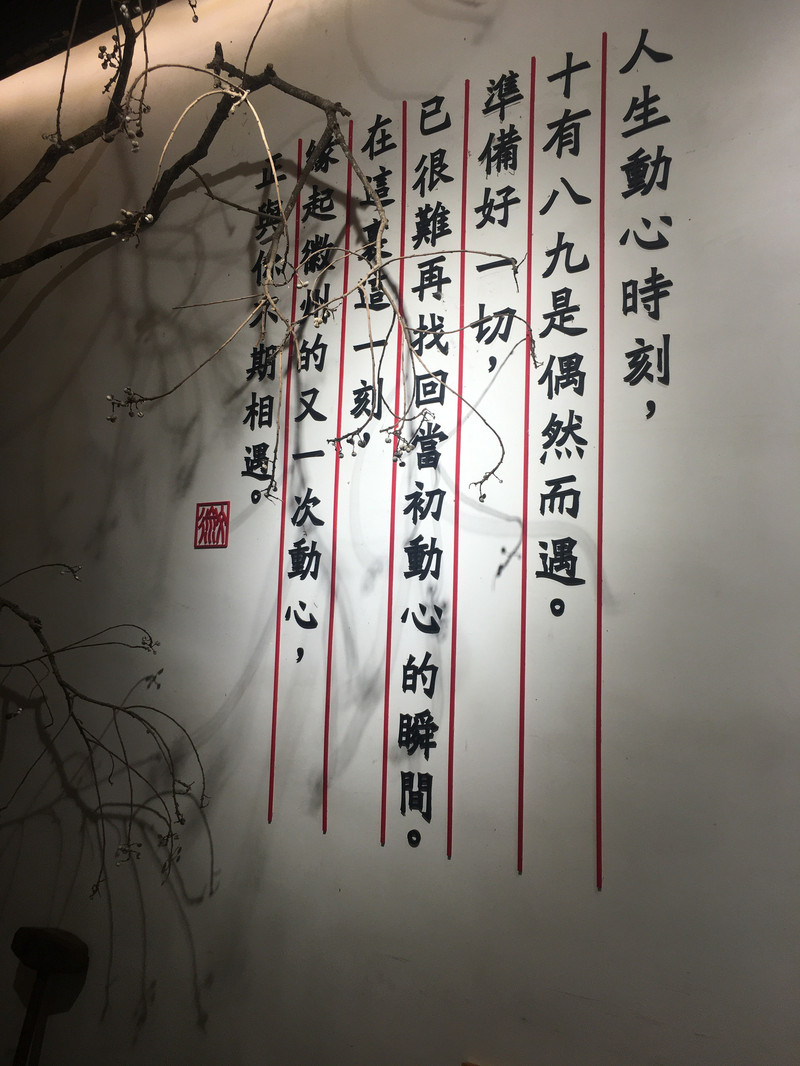 人生動心時刻，
十有八九是偶然而遇。
準備好一切，
已很難再找回當初動心的瞬間。
在這裏這一刻，
緣起徽州的又一次動心，
正與你不期相遇。